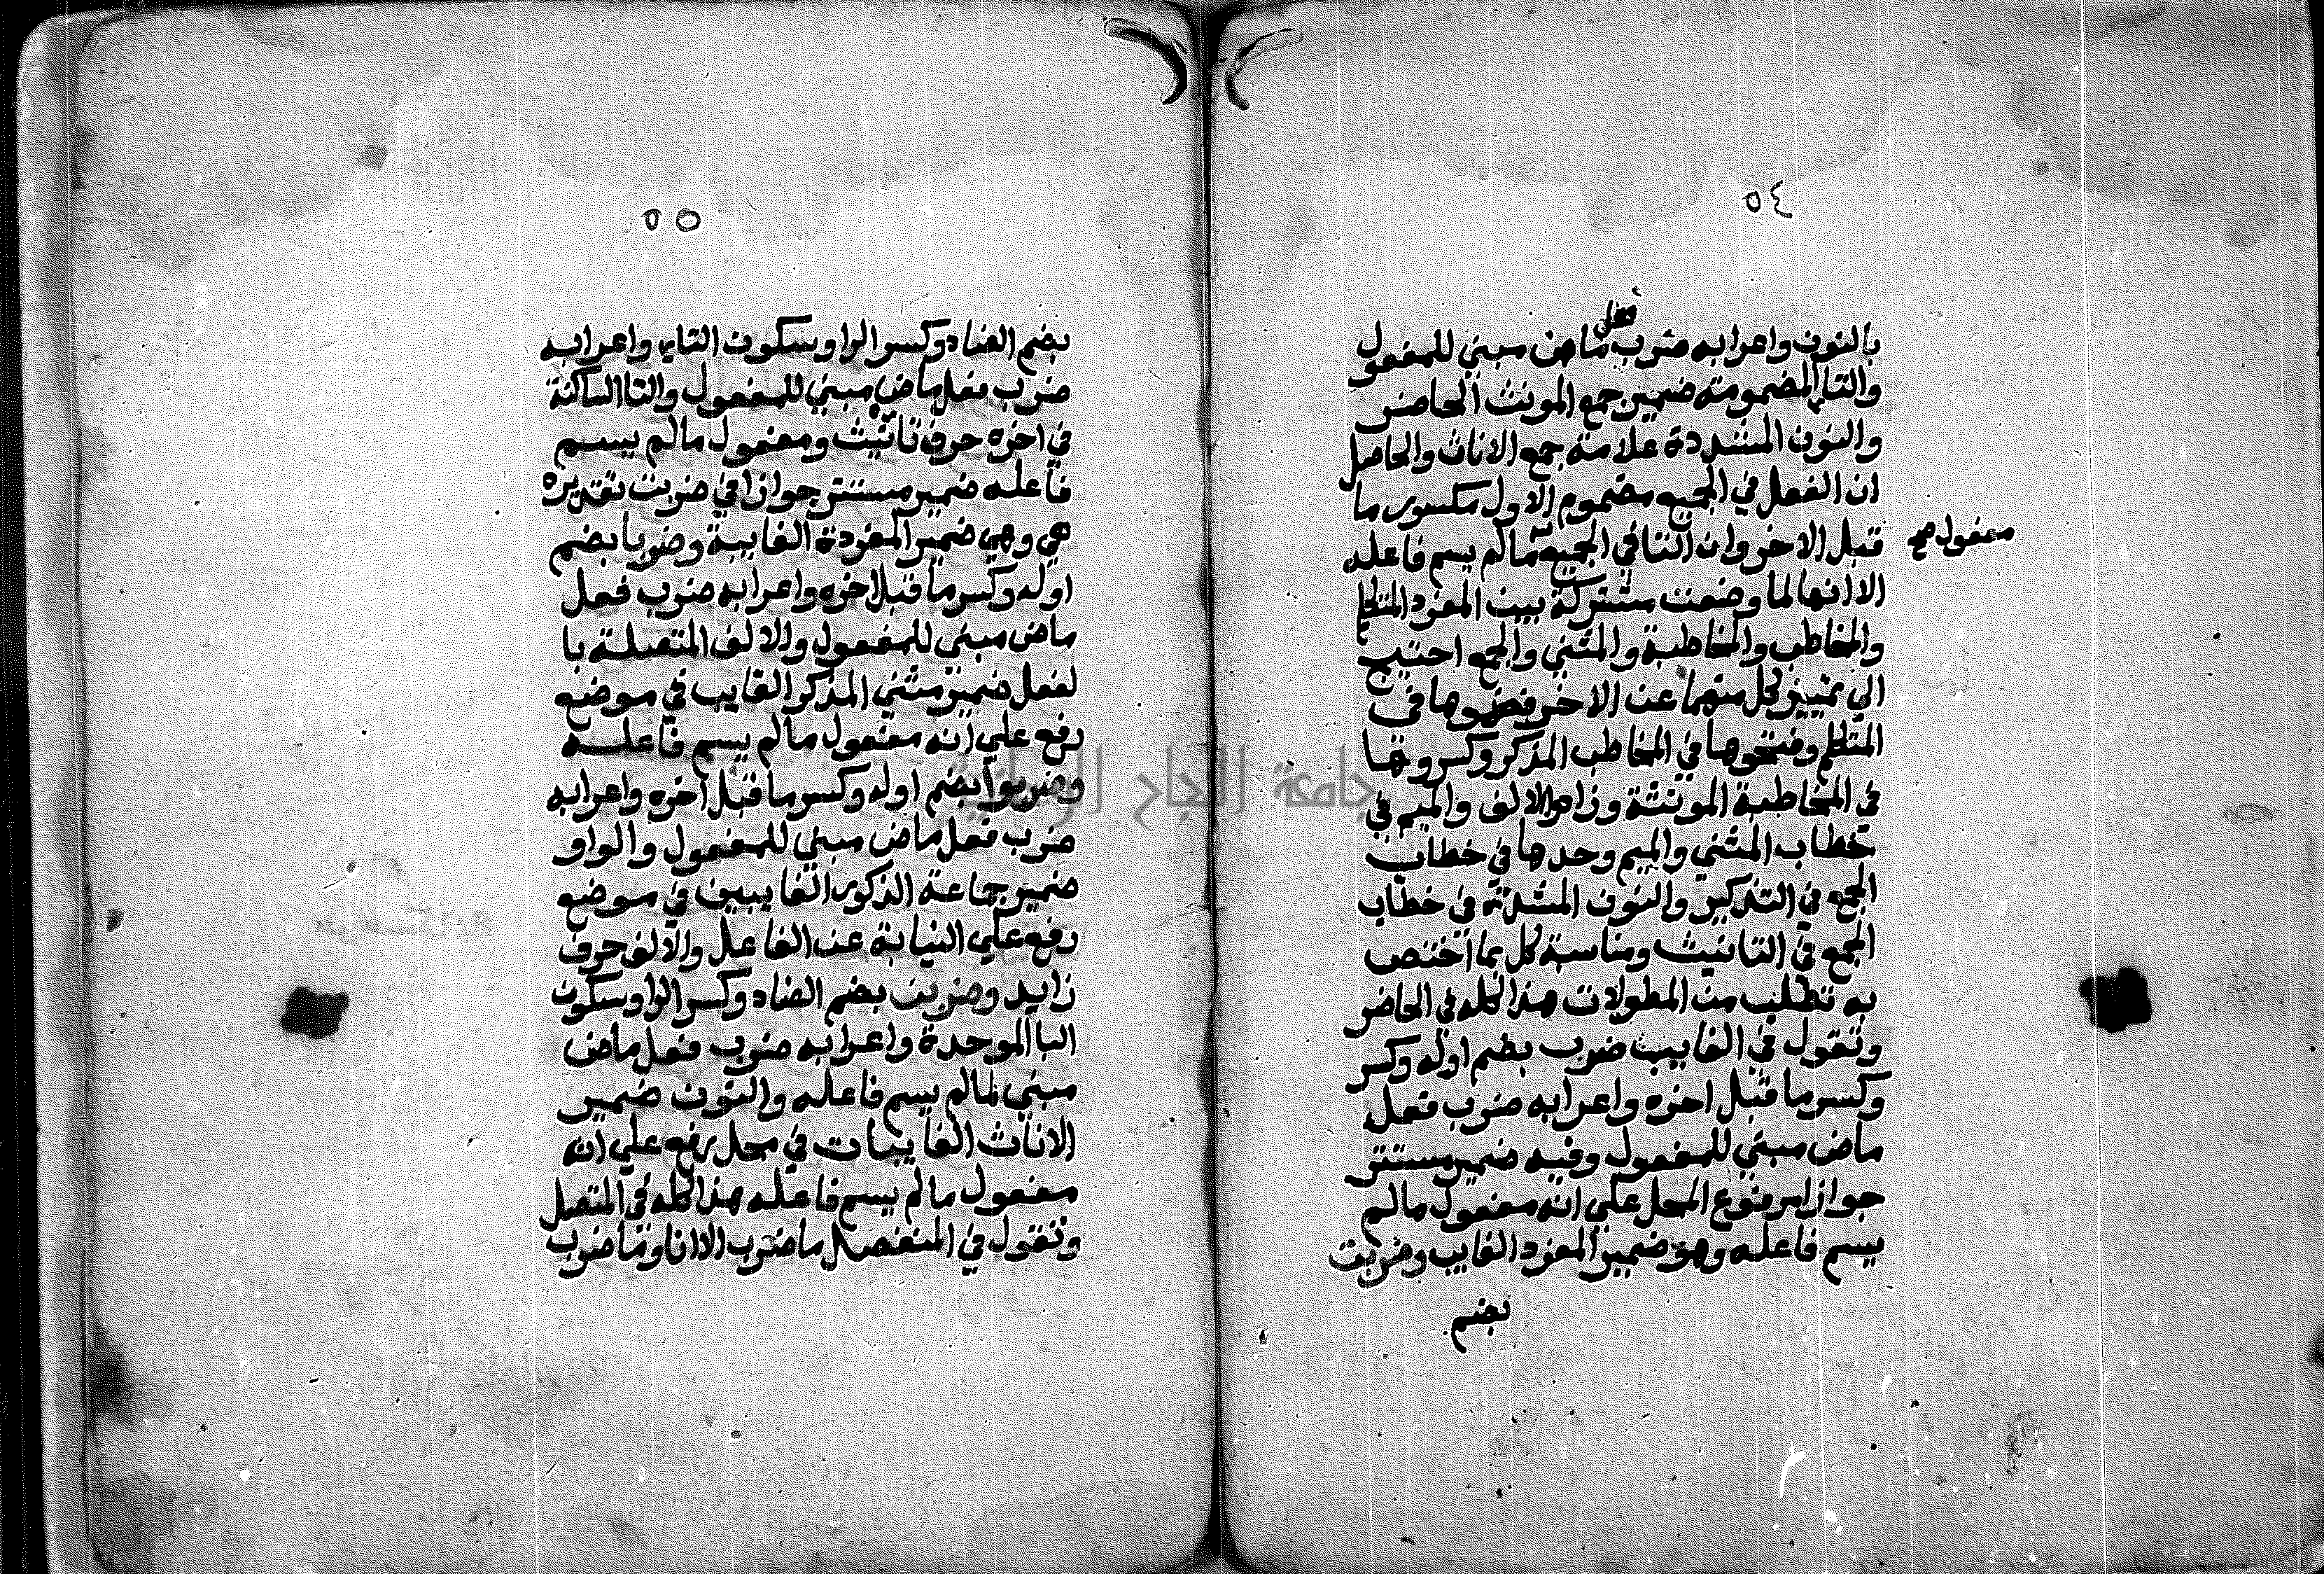 ٥٤
فعل
بالنون واعرابه ضرب ماض مبني للمفعول
والتاء المضمومة ضمير جمع المونث الحاضر
والنون المشددة علامة جمع الاناث والحاصل
ان الفعل في الجميع مضموم الاول مكسور ما
قبل الاخر وان التا في الجميع مالم يسم فاعله
مفعول صح
الا انها لما وضعت مشتركة بين المفرد المتكلم
والمخاطب والمخاطبة والمثني والجمع احتيج
الي تمييز لكل منهما عن الاخر فضموها في
المتكلم وفتحوها في المخاطب المذكر وكسروها
في المخاطبة المونثة وزادوا الالف والميم في
خطاب المثني والميم وحدها في خطاب
الجمع في التذكير والنون المشددة في خطاب
الجمع في التانيث ومناسبة كل بما اختص
به تطلب من المطولات هذا كله في الحاضر
وتقول في الغايب ضرب بضم اوله وكسر
وكسر ما قبل اخره واعرابه ضرب فعل
ماض مبني للمفعول وفيه ضمير مستتر
جوازا مرفوع المحل علي انه مفعول مالم
يسم فاعله وهو ضمير المفرد الغايب وضربت
بضم
٥٥
بضم الضاد وكسر الرا وسكون التاء واعرابه
ضرب فعل ماض مبني للمفعول والتا الساكنة
في اخره حرف تانيث ومفعول مالم يسم
فاعله ضمير مستتر جوازا في ضربت تقديره
هي وهي ضمير المفردة الغايبة وضربا بضم
اوله وكسر ما قبل اخره واعرابه ضرب فعل
ماض مبني للمفعول والالف المتصلة با
لفعل ضمير مثني المذكر الغايب في موضع
رفع علي انه مفعول مالم يسم فاعله
وضربوا بضم اوله وكسر ما قبل اخره واعرابه
ضرب فعل ماض مبني للمفعول والواو
ضمير جماعة الذكور الغايبين في موضع
رفع علي النيابة عن الفاعل والالف حرف
زايد وضربن بضم الضاد وكسر الرا وسكون
البا الموحدة واعرابه ضرب فعل ماض
مبني لمالم يسم فاعله والنون ضمير
الاناث الغايبات في محل رفع علي انه
مفعول مالم يسم فاعله هذا كله في المتصل
وتقول في المنفصل ما ضرب الا انا وما ضرب